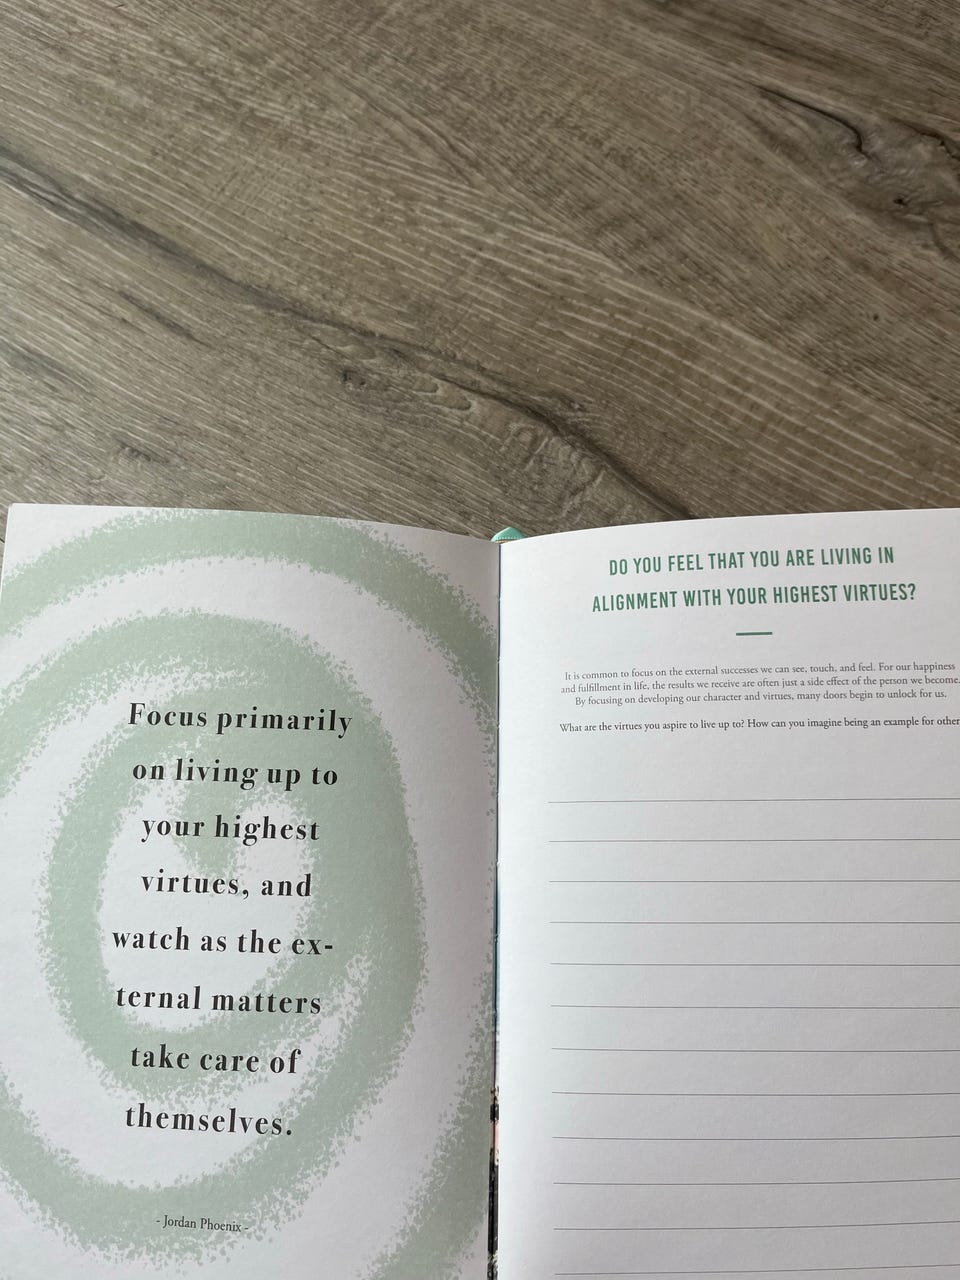 Focus primarily
on living up to
your highest
virtues, and
watch as the ex-
ternal matters
take care of
themselves.
- Jordan Phoenix -
DO YOU FEEL THAT YOU ARE LIVING IN
ALIGNMENT WITH YOUR HIGHEST VIRTUES?
It is common to focus on the external successes we can see, touch, and feel. For our happiness
and fulfillment in life, the results we receive are often just a side effect of the person we become.
By focusing on developing our character and virtues, many doors begin to unlock for us.
What are the virtues you aspire to live up to? How can you imagine being an example for other